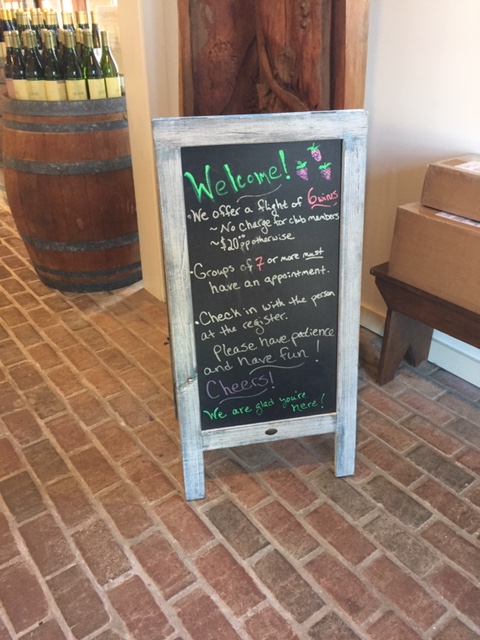 Welcome!
• We offer a flight of 6 wines
~ No Charge for club members
~ $20.00 pp otherwise
• Groups of 7 or more must
have an appointment.
• Check in with the person
at the register.
Please have patience
and have fun!
Cheers!
We are glad you're
here!